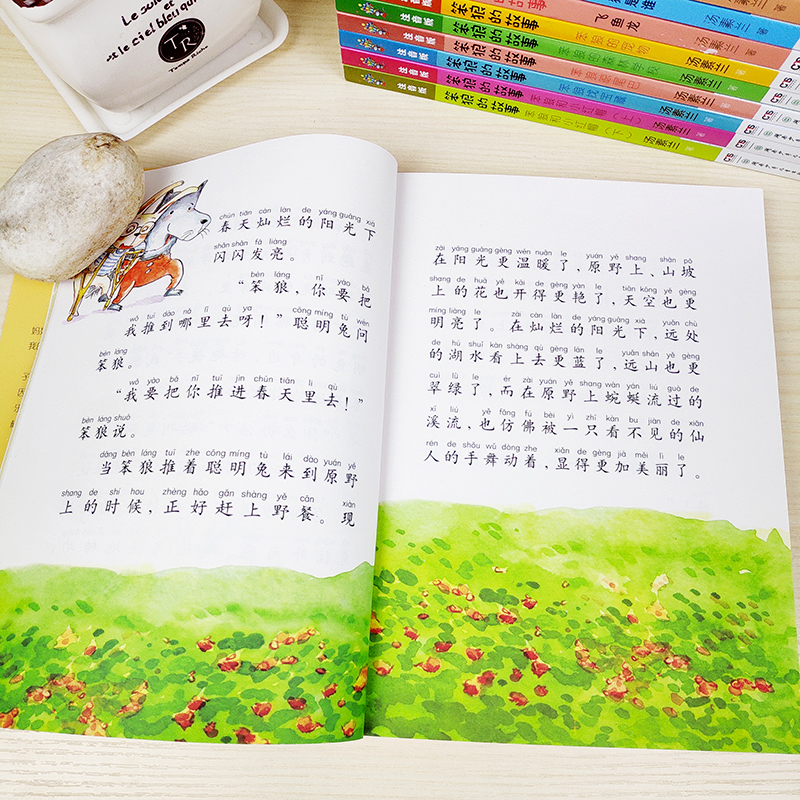 Le soleil
et
le ciel bleu qui
TR
注音版
飞鱼龙
汤素兰 著
注音版 笨狼的故事 汤素兰 著
注音版 笨狼的故事 汤素兰 著
注音版 笨狼的故事 汤素兰 著
注音版 笨狼的故事 笨狼和小红帽（上） 汤素兰 著
注音版 笨狼的故事 笨狼和小红帽（下） 汤素兰 著
chūn tiān càn làn de yáng guāng xià
春天灿烂的阳光下
shǎn shǎn fā liàng
闪闪发亮。
bèn láng nǐ yào bǎ
“笨狼，你要把
wǒ tuī dào nǎ lǐ qù ya cōng míng tù wèn
我推到哪里去呀！”聪明兔问
bèn láng
笨狼。
wǒ yào bǎ nǐ tuī jìn chūn tiān lǐ qù
“我要把你推进春天里去！”
bèn láng shuō
笨狼说。
dāng bèn láng tuī zhe cōng míng tù lái dào yuán yě
当笨狼推着聪明兔来到原野
shang de shí hou zhèng hǎo gǎn shàng yě cān xiàn
上的时候，正好赶上野餐。现
zài yáng guāng gèng wēn nuǎn le yuán yě shang shān pō
在阳光更温暖了，原野上、山坡
shang de huā yě kāi de gèng yàn le tiān kōng yě gèng
上的花也开得更艳了，天空也更
míng liàng le zài càn làn de yáng guāng xià yuǎn chù
明亮了。在灿烂的阳光下，远处
de hú shuǐ kàn shàng qù gèng lán le yuǎn shān yě gèng
的湖水看上去更蓝了，远山也更
cuì lǜ le ér zài yuán yě shang wān yán liú guò de
翠绿了，而在原野上蜿蜒流过的
xī liú yě fǎng fú bèi yì zhī kàn bu jiàn de xiān
溪流，也仿佛被一只看不见的仙
rén de shǒu wǔ dòng zhe xiǎn de gèng jiā měi lì le
人的手舞动着，显得更加美丽了。